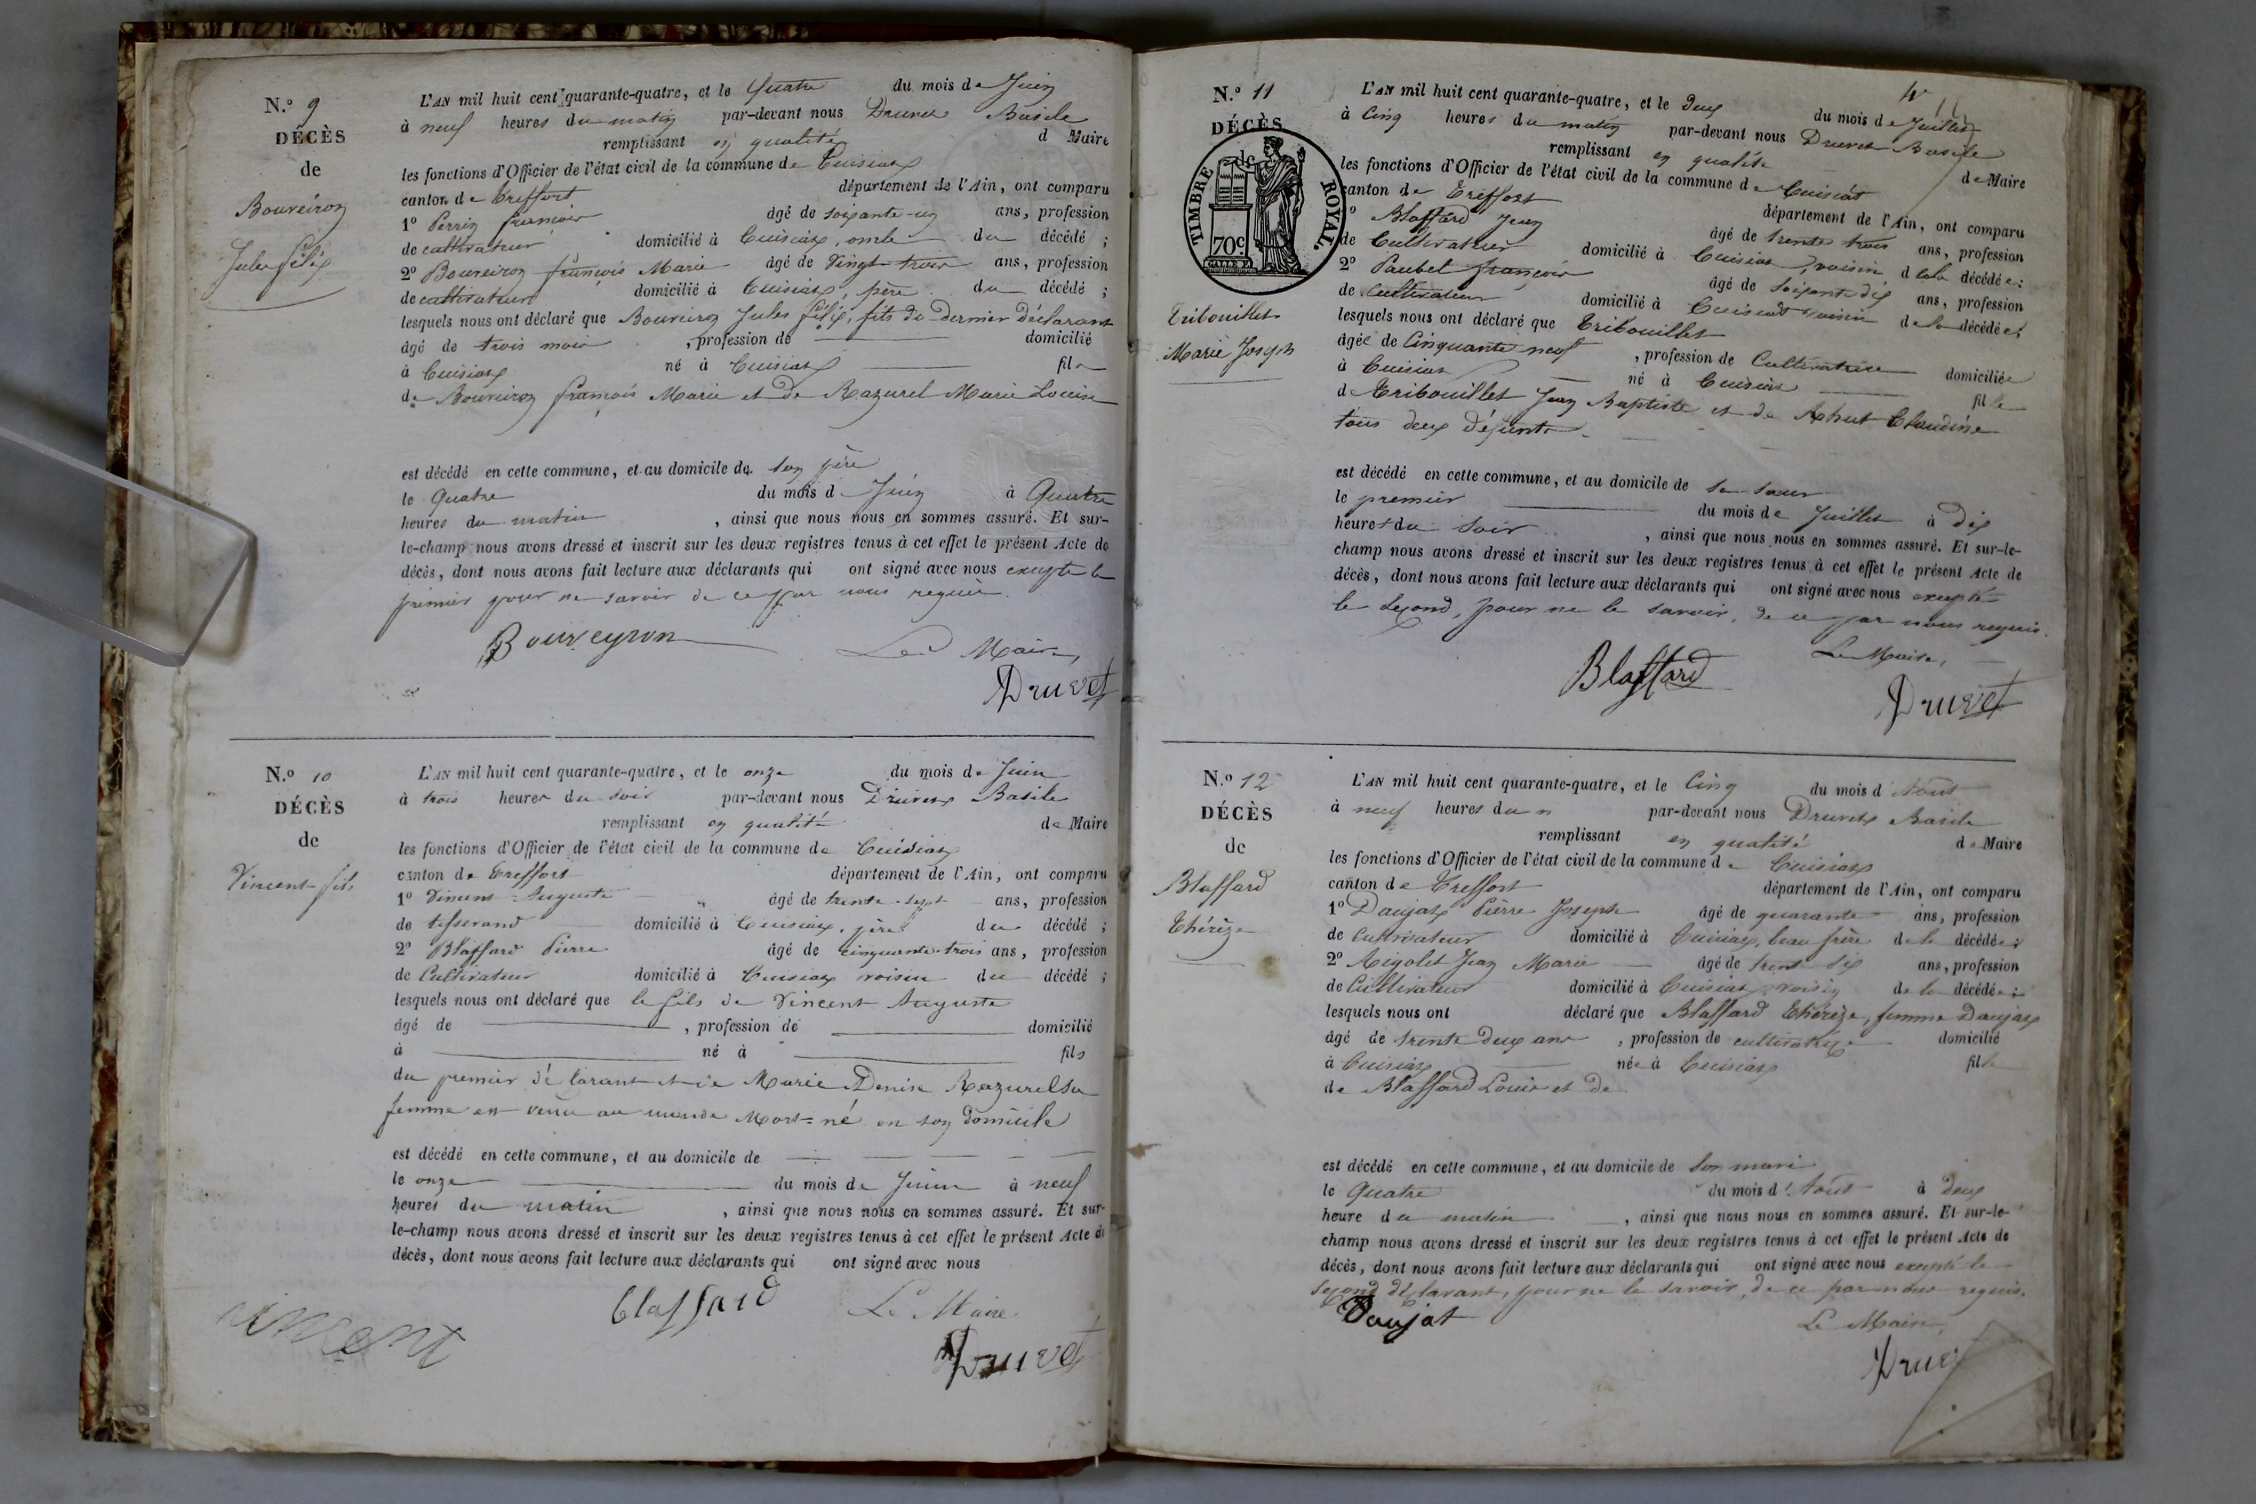 N.º 9
DÉCÈS
de
Bouveiron
Jules félix
L'AN mil huit cent quarante-quatre, et le Quatre du mois de Juin
à neuf heures du matin par-devant nous Druvet Basile
remplissant en qualité d Maire
les fonctions d'Officier de l'état civil de la commune de Cuisiat
canton de Treffort département de l'Ain, ont comparu
1º Perrin françois âgé de soixante-un ans, profession
de cultivateur domicilié à Cuisiat, oncle du décédé ;
2º Bouveiron françois Marie âgé de Vingt-trois ans, profession
de cultivateur domicilié à Cuisiat, père du décédé ;
lesquels nous ont déclaré que Bouveiron Jules félix, fils du dernier déclarant
âgé de trois mois , profession de domicilié
à Cuisiat né à Cuisiat fils
de Bouveiron françois Marie et de Razurel Marie Louise
est décédé en cette commune, et au domicile de son père
le Quatre du mois d Juin à Quatre
heures du matin , ainsi que nous nous en sommes assuré. Et sur-
le-champ nous avons dressé et inscrit sur les deux registres tenus à cet effet le présent Acte de
décès, dont nous avons fait lecture aux déclarants qui ont signé avec nous excepté le
premier pour ne savoir de ce par nous requis.
Bouveyron Le Maire,
Druvet
N.º 10
DÉCÈS
de
Vincent fils
L'AN mil huit cent quarante-quatre, et le onze du mois de Juin
à trois heures du soir par-devant nous Druvet Basile
remplissant en qualité de Maire
les fonctions d'Officier de l'état civil de la commune de Cuisiat
canton de Treffort département de l'Ain, ont comparu
1º Vincent Auguste âgé de trente-sept ans, profession
de tisserand domicilié à Cuisiat, père du décédé ;
2º Blaffard Pierre âgé de cinquante-trois ans, profession
de Cultivateur domicilié à Cuisiat voisin du décédé ;
lesquels nous ont déclaré que le fils de Vincent Auguste
âgé de , profession de domicilié
à né à fils
du premier déclarant et de Marie Denise Razurel sa
femme est venu au monde Mort-né en son domicile
est décédé en cette commune, et au domicile de
le onze du mois de Juin à neuf
heures du matin , ainsi que nous nous en sommes assuré. Et sur-
le-champ nous avons dressé et inscrit sur les deux registres tenus à cet effet le présent Acte de
décès, dont nous avons fait lecture aux déclarants qui ont signé avec nous
vincent blaffard Le Maire
Druvet
N.º 11
DÉCÈS
de
TIMBRE ROYAL
70c
Tribouillet
Marie Joseph
L'AN mil huit cent quarante-quatre, et le deux du mois de Juillet
à Cinq heures du matin par-devant nous Druvet Basile
remplissant en qualité de Maire
les fonctions d'Officier de l'état civil de la commune de Cuisiat
canton de Treffort département de l'Ain, ont comparu
1º Blaffard Jean âgé de trente trois ans, profession
de Cultivateur domicilié à Cuisiat, voisin d la décédée ;
2º Paubel françois âgé de soixante dix ans, profession
de Cultivateur domicilié à Cuisiat voisin de la décédée ;
lesquels nous ont déclaré que Tribouillet
âgée de Cinquante neuf , profession de Cultivatrice domiciliée
à Cuisiat né à Cuisiat fille
de Tribouillet Jean Baptiste et de Claudine
tous deux défunts.
est décédé en cette commune, et au domicile de sa soeur
le premier du mois de Juillet à dix
heures du Soir , ainsi que nous nous en sommes assuré. Et sur-le-
champ nous avons dressé et inscrit sur les deux registres tenus à cet effet le présent Acte de
décès, dont nous avons fait lecture aux déclarants qui ont signé avec nous excepté
le second, pour ne le savoir, de ce par nous requis.
Blaffard Le Maire,
Druvet
N.º 12
DÉCÈS
de
Blaffard
Thérèze
L'AN mil huit cent quarante-quatre, et le Cinq du mois d'Aout
à neuf heures du m par-devant nous Druvet Basile
remplissant en qualité de Maire
les fonctions d'Officier de l'état civil de la commune de Cuisiat
canton de Treffort département de l'Ain, ont comparu
1º Daujat Pierre Joseph âgé de quarante ans, profession
de Cultivateur domicilié à Cuisiat, beau frère de la décédée ;
2º Rigolet Jean Marie âgé de trent six ans, profession
de Cultivateur domicilié à Cuisiat, voisin de la décédée ;
lesquels nous ont déclaré que Blaffard Thérèze, femme Daujat
âgé de trente deux ans , profession de cultivatrice domicilié
à Cuisiat née à Cuisiat fille
de Blaffard Louis et de
est décédé en cette commune, et au domicile de son mari
le Quatre du mois d'Aout à deux
heure du matin , ainsi que nous nous en sommes assuré. Et sur-le-
champ nous avons dressé et inscrit sur les deux registres tenus à cet effet le présent Acte de
décès, dont nous avons fait lecture aux déclarants qui ont signé avec nous excepté le
second déclarant, pour ne le savoir, de ce par nous requis.
Daujat Le Maire,
Druv